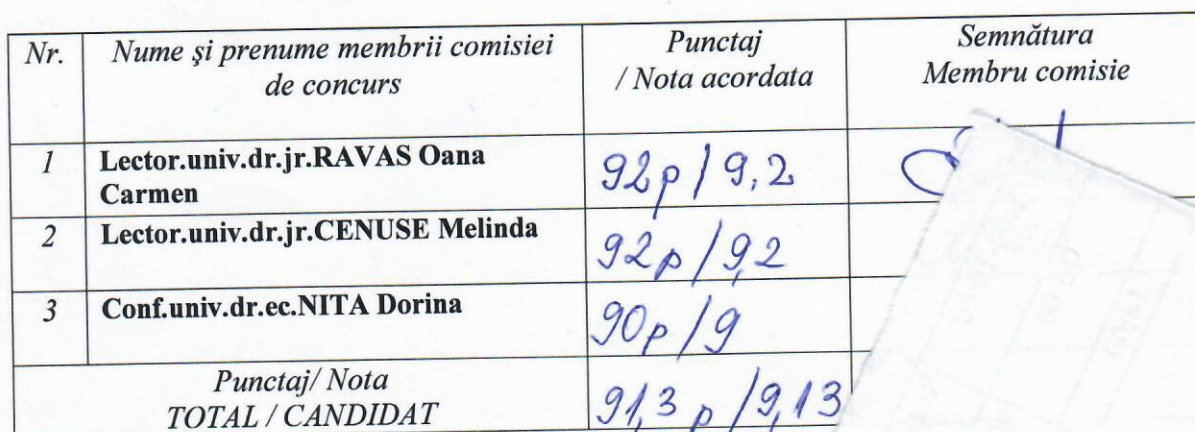 Nr. Nume şi prenume membrii comisiei de concurs Punctaj / Nota acordata Semnătura Membru comisie
1 Lector.univ.dr.jr.RAVAS Oana Carmen 92p / 9,2
2 Lector.univ.dr.jr.CENUSE Melinda 92p / 9,2
3 Conf.univ.dr.ec.NITA Dorina 90p / 9
Punctaj/ Nota TOTAL / CANDIDAT 91,3 p / 9,13